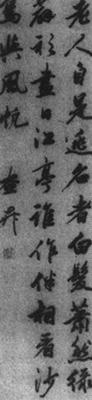 老人自是逃名者白髮蕭然綠
衫盡日江亭誰作伴相看沙
鳥與風帆 查昇